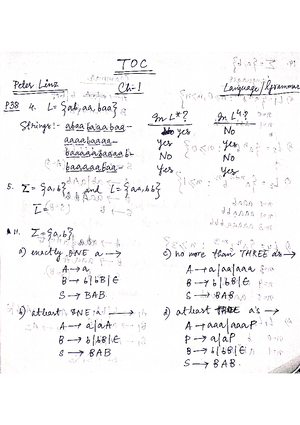 TOC
Peter Linz Ch-1 Language/Grammar
P38 4. L = {ab, aa, baa}
In L*? In L4?
Strings:- abaabaaabaa- yes No
aaaabaaaa- Yes Yes
baaaaabaaaab- No No
baaaaabaa- Yes Yes
5. Σ = {a,b} and L = {aa, bb}
L̅ =
11. Σ = {a,b}
a) exactly ONE a →
A → a
B → b|bB|ϵ
S → BAB
b) atleast ONE a →
A → a|aA
B → b|bB|ϵ
S → BAB
c) no more than THREE a's →
A → a|aa|aaa
B → b|bB|ϵ
S → BAB
d) atleast THREE a's →
A → aaa|aaaP
P → a|aP
B → b|bB|ϵ
S → BAB.